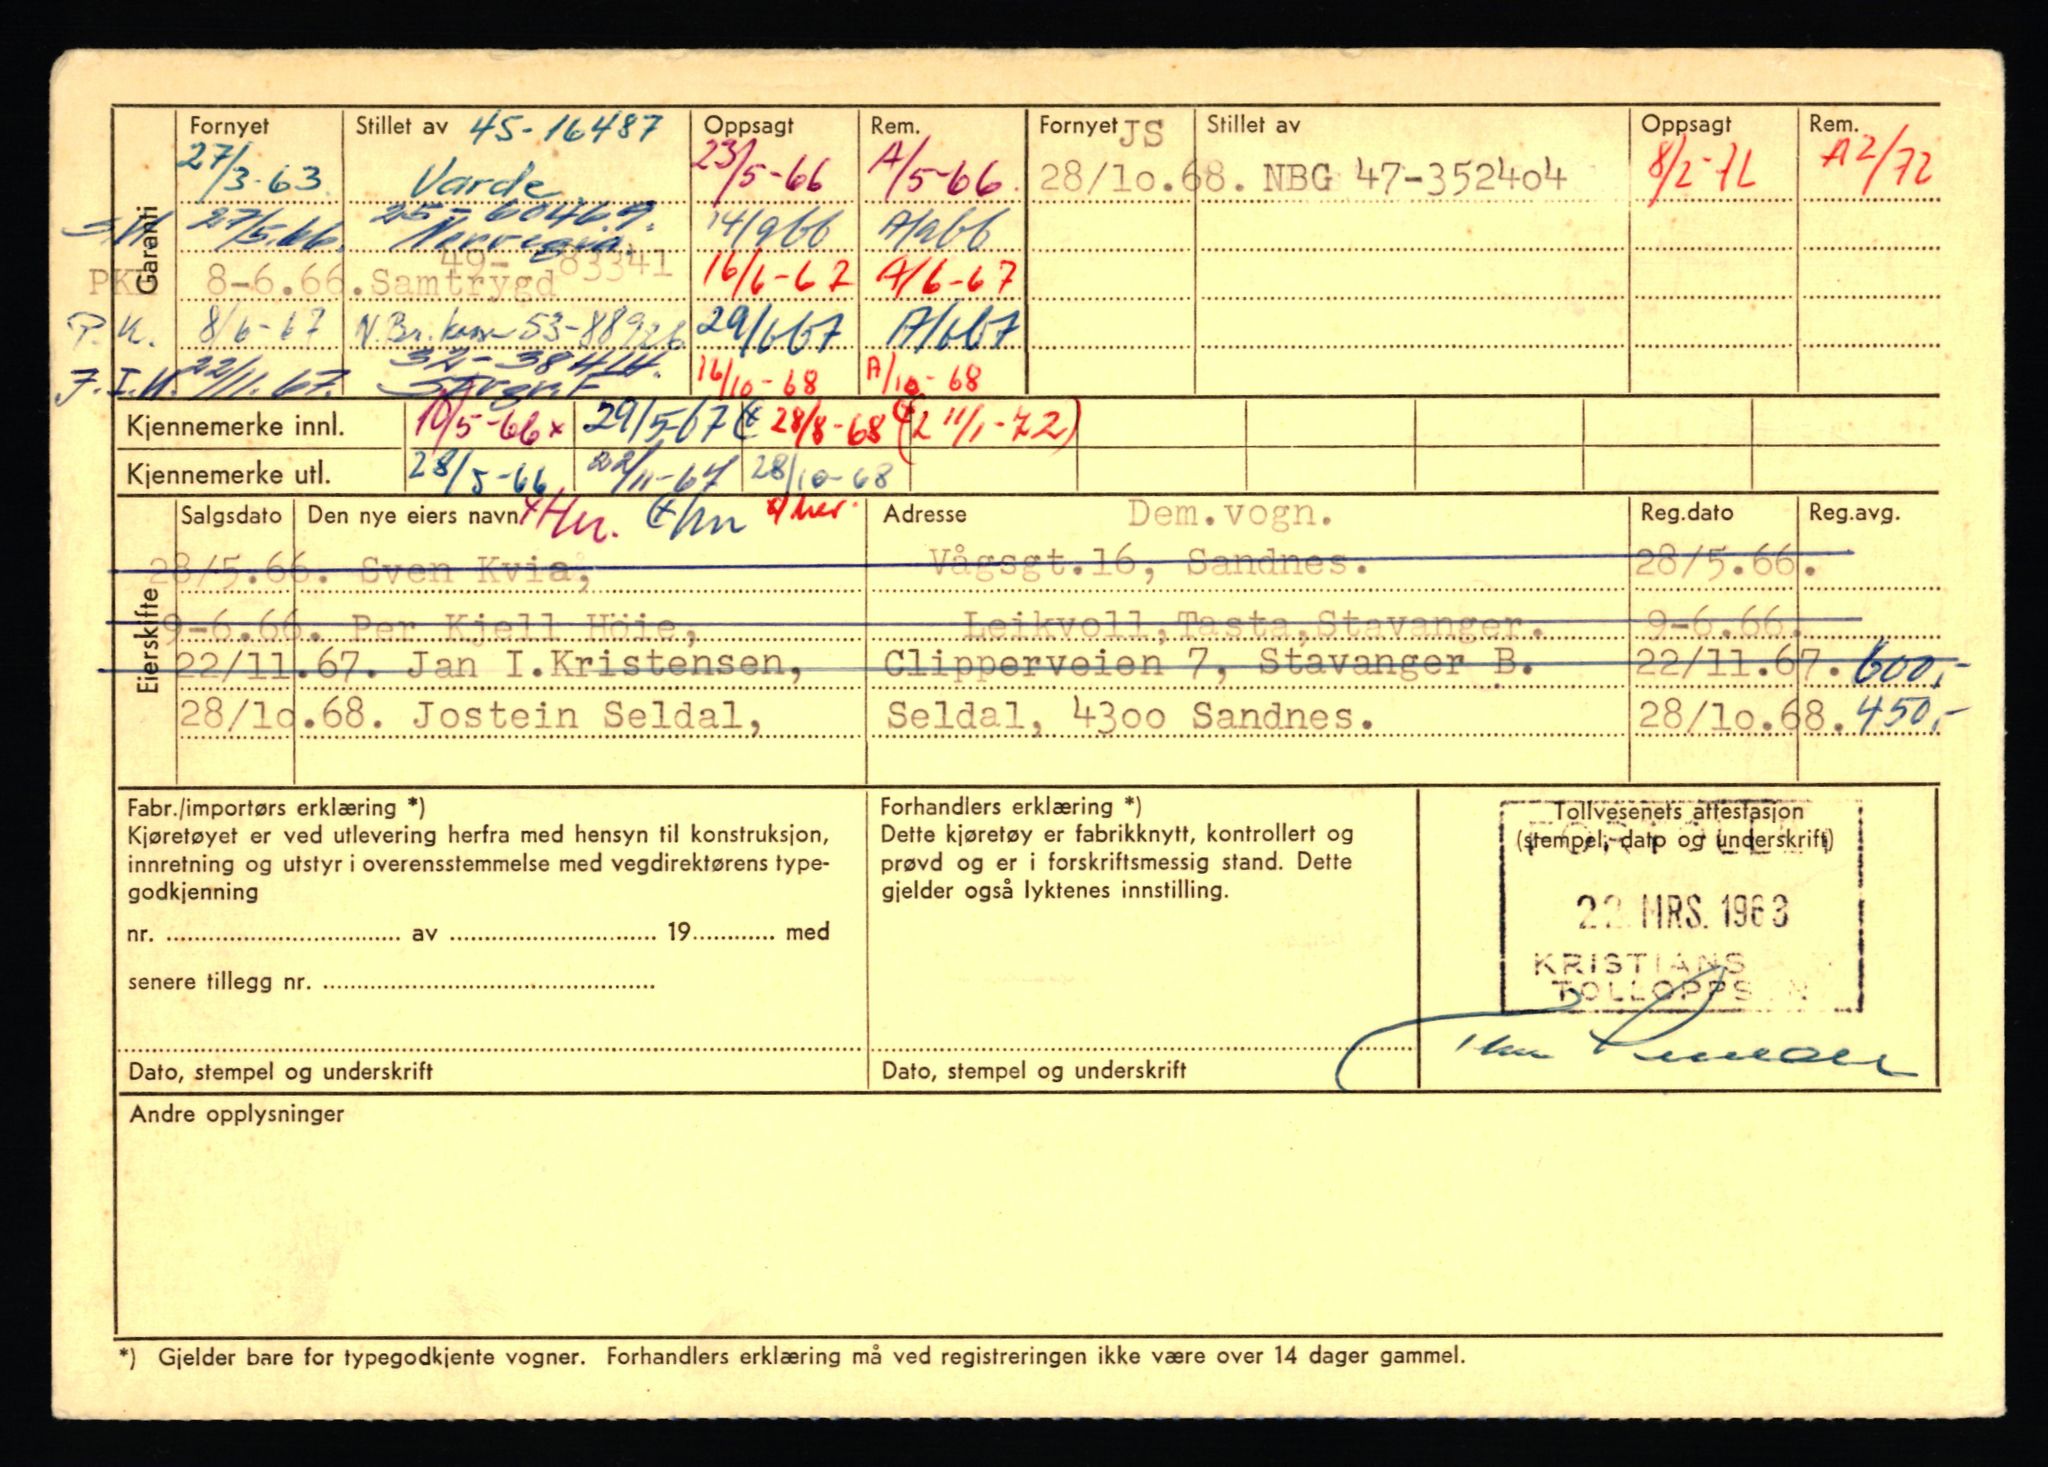 Fornyet Stillet av 45-16487 Oppsagt Rem. Fornyet JS Stillet av Oppsagt Rem.
Garanti
27/3-63 Varde 23/5-66 A/5-66. 28/10.68. NBG 47-352404 8/2-72 A2/72
27/5.66. 25-60469. 14/966 A/966
Norvegia
PKH 8-6.66. Samtrygd 49- 83341 16/6-67 A/6-67
P.K. 8/6-67 53-88926 29/667 A/667
J.I.K. 22/11.67. 32-38414. 16/10-68 A/10-68
Kjennemerke innl. 10/5-66 x 29/5-67 28/8-68 (2 11/1-72)
Kjennemerke utl. 28/5-66 22/11-67 28/10-68
Eierskifte
Salgsdato Den nye eiers navn Adresse Dem.vogn. Reg.dato Reg.avg.
28/5.66. Sven Kvia, Vågsgt.16, Sandnes. 28/5.66.
9-6.66. Per Kjell Höie, Leikvoll,Tasta,Stavanger. 9-6.66.
22/11.67. Jan I.Kristensen, Clipperveien 7, Stavanger B. 22/11.67. 600,-
28/10.68. Jostein Seldal, Seldal, 4300 Sandnes. 28/10.68. 450,-
Fabr./importørs erklæring *)
Kjøretøyet er ved utlevering herfra med hensyn til konstruksjon,
innretning og utstyr i overensstemmelse med vegdirektørens type-
godkjenning
nr. av 19 med
senere tillegg nr.
Dato, stempel og underskrift
Forhandlers erklæring *)
Dette kjøretøy er fabrikknytt, kontrollert og
prøvd og er i forskriftsmessig stand. Dette
gjelder også lyktenes innstilling.
Dato, stempel og underskrift
Tollvesenets attestasjon
(stempel, dato og underskrift)
22 MRS. 1963
KRISTIANS
TOLLOPPS N
Andre opplysninger
*) Gjelder bare for typegodkjente vogner. Forhandlers erklæring må ved registreringen ikke være over 14 dager gammel.